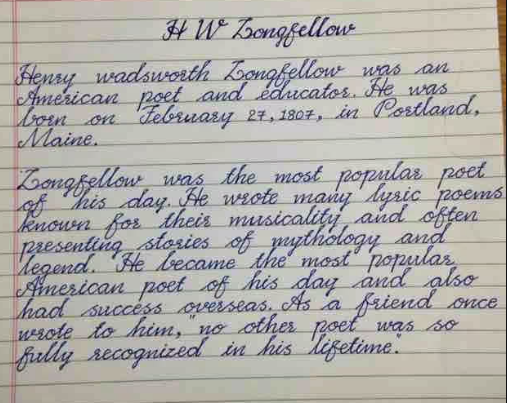 H W Longfellow
Henry wadsworth Longfellow was an
American poet and educator. He was
born on February 27, 1807, in Portland,
Maine.
Longfellow was the most popular poet
of his day. He wrote many lyric poems
known for their musicality and often
presenting stories of mythology and
legend. He became the most popular
American poet of his day and also
had success overseas. As a friend once
wrote to him, "no other poet was so
fully recognized in his lifetime".